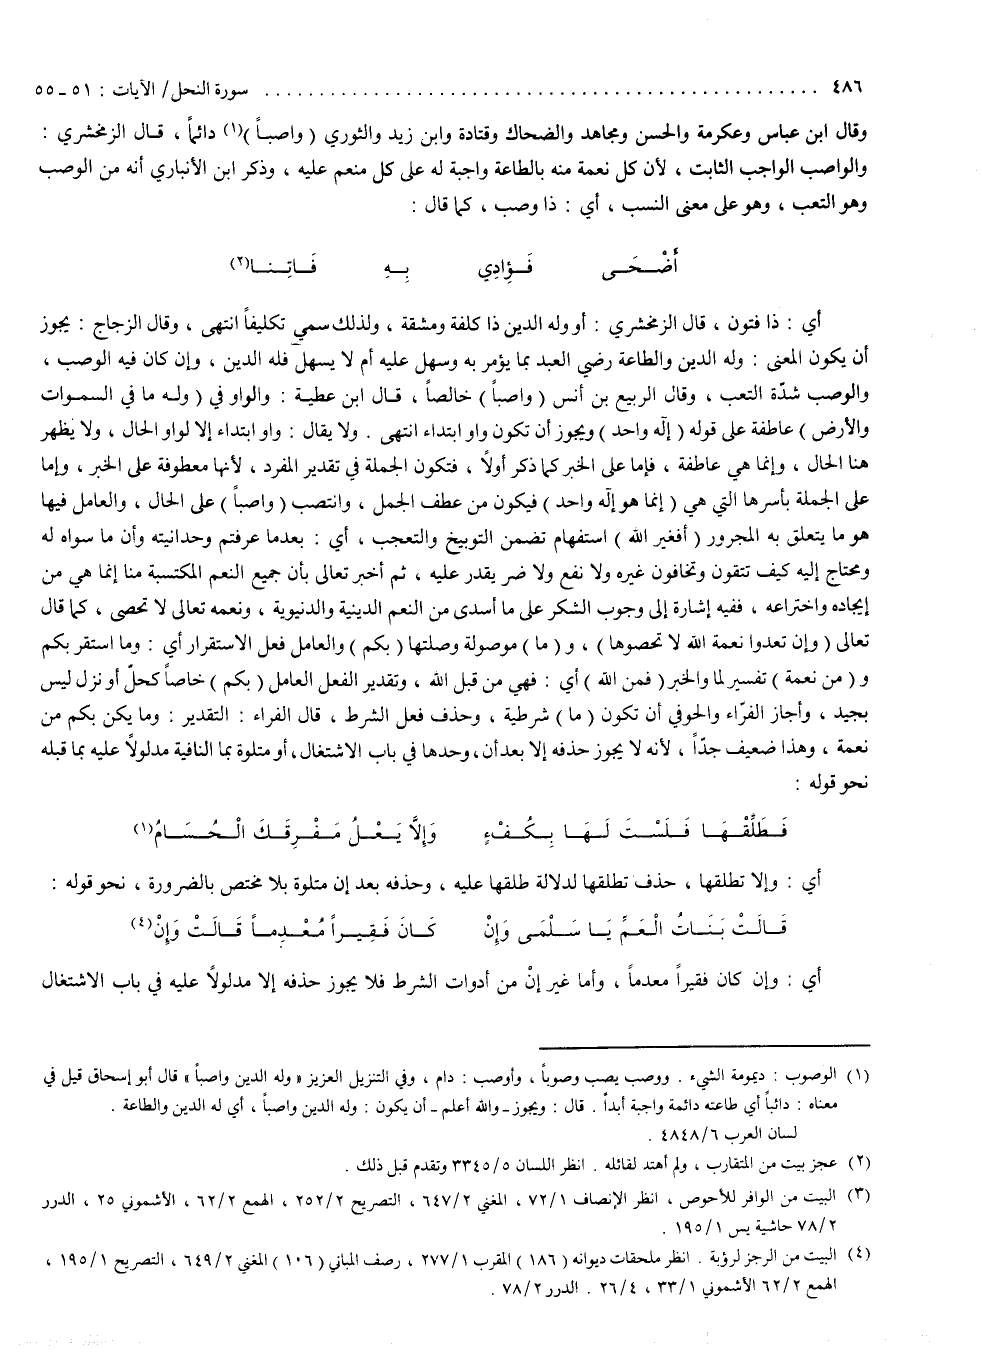 ٤٨٦ . . . . . . . . . . . . . . . . . . . . . . . . . . . . . . . . . . . . . . . . . . . . . . . . . . سورة النحل/ الآيات : ٥١ - ٥٥
وقال ابن عباس وعكرمة والحسن ومجاهد والضحاك وقتادة وابن زيد والثوري ( واصباً )(١) دائماً ، قال الزمخشري :
والواصب الواجب الثابت ، لأن كل نعمة منه بالطاعة واجبة له على كل منعم عليه ، وذكر ابن الأنباري أنه من الوصب
وهو التعب ، وهو على معنى النسب ، أي : ذا وصب ، كما قال :
أَضْحَى فُؤَادِي بِهِ فَاتِنَا(٢)
أي : ذا فتون ، قال الزمخشري : أو وله الدين ذا كلفة ومشقة ، ولذلك سمي تكليفاً انتهى ، وقال الزجاج : يجوز
أن يكون المعنى : وله الدين والطاعة رضي العبد بما يؤمر به وسهل عليه أم لا يسهل فله الدين ، وإن كان فيه الوصب ،
والوصب شدّة التعب ، وقال الربيع بن أنس ( واصباً ) خالصاً ، قال ابن عطية : والواو في ( وله ما في السموات
والأرض ) عاطفة على قوله ( إلٰه واحد ) ويجوز أن تكون واو ابتداء انتهى . ولا يقال : واو ابتداء إلا لواو الحال ، ولا يظهر
هنا الحال ، وإنما هي عاطفة ، فإما على الخبر كما ذكر أولاً ، فتكون الجملة في تقدير المفرد ، لأنها معطوفة على الخبر ، وإما
على الجملة بأسرها التي هي ( إنما هو إلٰه واحد ) فيكون من عطف الجمل ، وانتصب ( واصباً ) على الحال ، والعامل فيها
هو ما يتعلق به المجرور ( أفغير الله ) استفهام تضمن التوبيخ والتعجب ، أي : بعدما عرفتم وحدانيته وأن ما سواه له
ومحتاج إليه كيف تتقون وتخافون غيره ولا نفع ولا ضر يقدر عليه ، ثم أخبر تعالى بأن جميع النعم المكتسبة منا إنما هي من
إيجاده واختراعه ، ففيه إشارة إلى وجوب الشكر على ما أسدى من النعم الدينية والدنيوية ، ونعمه تعالى لا تحصى ، كما قال
تعالى ( وإن تعدوا نعمة الله لا تحصوها ) ، و ( ما ) موصولة وصلتها ( بكم ) والعامل فعل الاستقرار أي : وما استقر بكم
و ( من نعمة ) تفسير لما والخبر ( فمن الله ) أي : فهي من قبل الله ، وتقدير الفعل العامل ( بكم ) خاصاً كحلّ أو نزل ليس
بجيد ، وأجاز الفرّاء والحوفي أن تكون ( ما ) شرطية ، وحذف فعل الشرط ، قال الفراء : التقدير : وما يكن بكم من
نعمة ، وهذا ضعيف جدّاً ، لأنه لا يجوز حذفه إلا بعد أن ، وحدها في باب الاشتغال ، أو متلوة بما النافية مدلولاً عليه بما قبله
نحو قوله :
فَطَلِّقْهَا فَلَسْتَ لَهَا بِكُفْءٍ وَإِلَّا يَعْلُ مَفْرِقَكَ الْحُسَامُ(١)
أي : وإلا تطلقها ، حذف تطلقها لدلالة طلقها عليه ، وحذفه بعد إن متلوة بلا مختص بالضرورة ، نحو قوله :
قَالَتْ بَنَاتُ الْعَمِّ يَا سَلْمَى وَإِنْ كَانَ فَقِيراً مُعْدِماً قَالَتْ وَإِنْ(٤)
أي : وإن كان فقيراً معدماً ، وأما غير إنْ من أدوات الشرط فلا يجوز حذفه إلا مدلولاً عليه في باب الاشتغال
(١) الوصوب : ديمومة الشيء . ووصب يصب وصوباً ، وأوصب : دام ، وفي التنزيل العزيز « وله الدين واصباً » قال أبو إسحاق قيل في
معناه : دائباً أي طاعته دائمة واجبة أبداً . قال : ويجوز - والله أعلم - أن يكون : وله الدين واصباً ، أي له الدين والطاعة .
لسان العرب ٤٨٤٨/٦ .
(٢) عجز بيت من المتقارب ، ولم أهتد لقائله . انظر اللسان ٣٣٤٥/٥ وتقدم قبل ذلك .
(٣) البيت من الوافر للأحوص ، انظر الإنصاف ٧٢/١ ، المغني ٦٤٧/٢ ، التصريح ٢٥٢/٢ ، الهمع ٦٢/٢ ، الأشموني ٢٥ ، الدرر
٧٨/٢ حاشية يس ١٩٥/١ .
(٤) البيت من الرجز لرؤبة . انظر ملحقات ديوانه ( ١٨٦ ) المقرب ٢٧٧/١ ، رصف المباني ( ١٠٦ ) المغني ٦٤٩/٢ ، التصريح ١٩٥/١ ،
الهمع ٦٢/٢ الأشموني ٣٣/١ ، ٢٦/٤ . الدرر ٧٨/٢ .